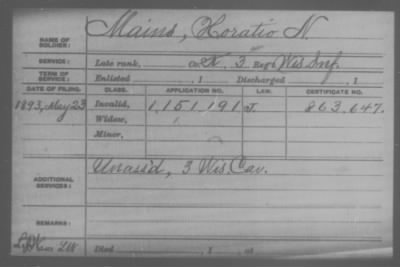 NAME OF SOLDIER: Mains, Horatio N.
SERVICE: Late rank, Co. K, 3 Reg't Wis Inf.
TERM OF SERVICE: Enlisted , 1 Discharged , 1
DATE OF FILING. CLASS. APPLICATION NO. LAW. CERTIFICATE NO.
1893, May 23 Invalid, 1,151,191 J. 863,647.
Widow,
Minor,
ADDITIONAL SERVICES: Unas'd, 3 Wis. Cav.
REMARKS:
Died , 1 , at